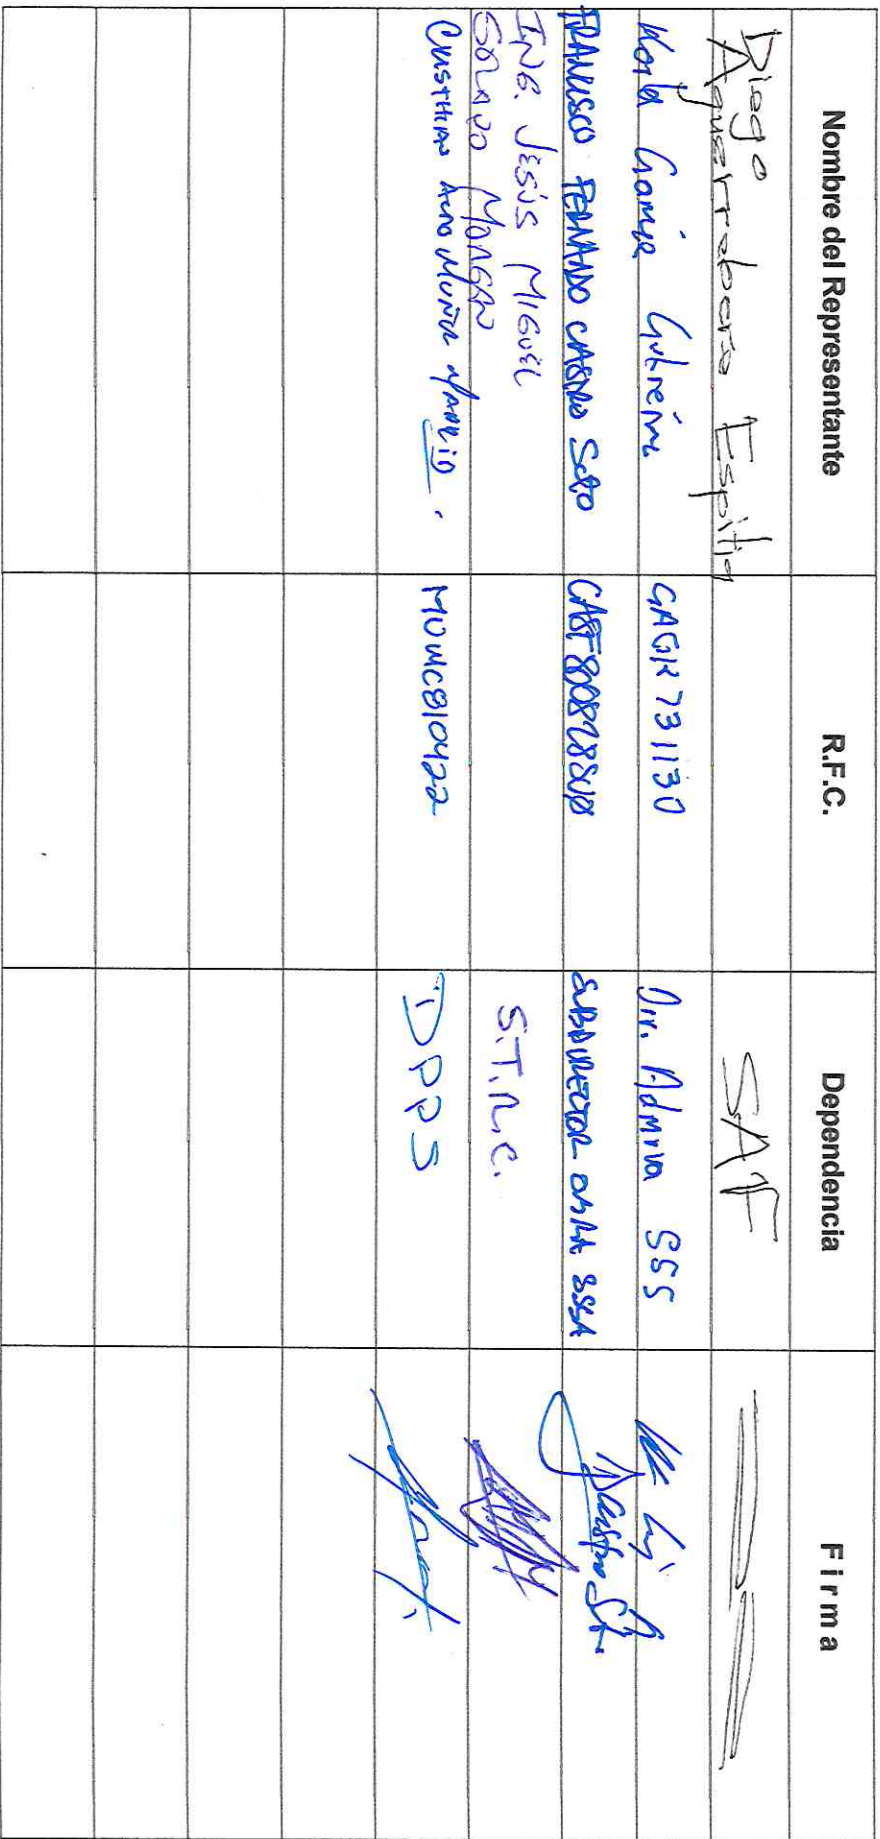 Nombre del Representante R.F.C. Dependencia Firma
Diego
Aguerrebere Espitia SAF
Karla García Gutiérrez GAGK731130 Dir. Admva SSS
FRANCISCO FERNANDO CASTRO SOTO CASF800828 SUBDIRECTOR SSSA
ING. JESÚS MIGUEL
SOLANO S.T.R.C.
MUÑOZ MADRID. MUMC810422 DPPS